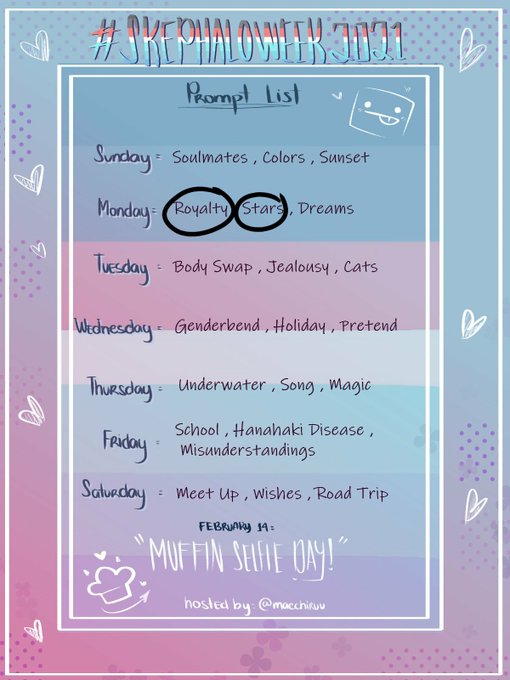 #SKEPHALOWEEK2021
Prompt List
Sunday = Soulmates , Colors , Sunset
Monday = Royalty , Stars , Dreams
Tuesday = Body Swap , Jealousy , Cats
Wednesday = Genderbend , Holiday , Pretend
Thursday = Underwater , Song , Magic
Friday = School , Hanahaki Disease ,
Misunderstandings
Saturday = Meet Up , Wishes , Road Trip
FEBRUARY 14 =
"MUFFIN SELFIE DAY!"
hosted by: @macchiruu